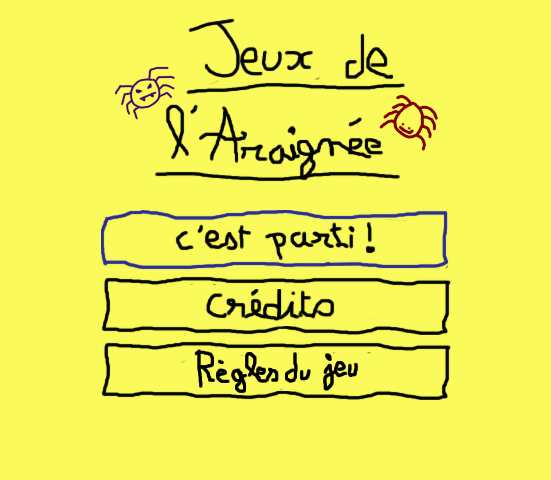 Jeux de
l'Araignée
c'est parti !
Crédits
Règles du jeu